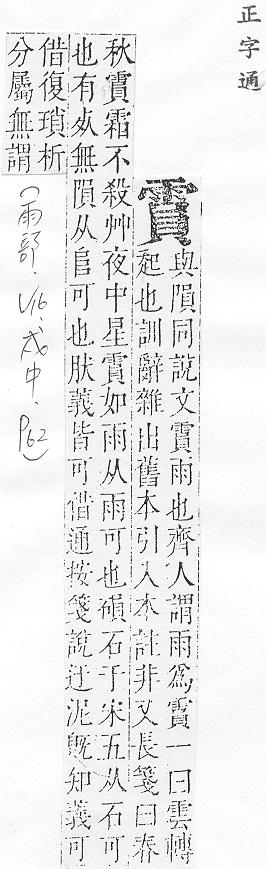 正字通
霣
與隕同說文霣雨也齊人謂雨爲霣一曰雲轉
起也訓辭雜出舊本引入本註非又長箋曰春
秋霣霜不殺艸夜中星霣如雨从雨可也磒石于宋五从石可
也有攱無隕从𨸏可也肰義皆可借通按箋說迂泥旣知義可
借復瑣析
分屬無謂
(雨部、V16、戌中、P62)